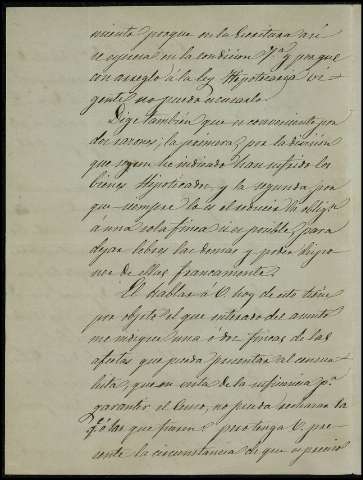 miento porque en la Escritura así
se espresa en la condicion 7ª y porque
con arreglo á la ley Hipotecaria vi-
gente no puede escusarlo.
Dige también que es conveniente por
dos razones; la primera, por la division
que segun he indicado han sufrido los
bienes Hipotecados, y la segunda por
que siempre lo es el reducir la oblig.ⁿ
á una sola finca si es posible, para
dejar libres las demas y poder dispo-
ner de ellas francamente.
El hablar á V. hoy de esto tiene
por objeto el que enterado del asunto
me indique una ó dos fincas de las
afectas que pueda presentar al censua-
lista, que en vista de la suficiencia pª
garantir el Censo, no pueda rechazar la
q.ᵉ ó las que fueren; pero tenga V. pre-
sente la circunstancia de que es preciso